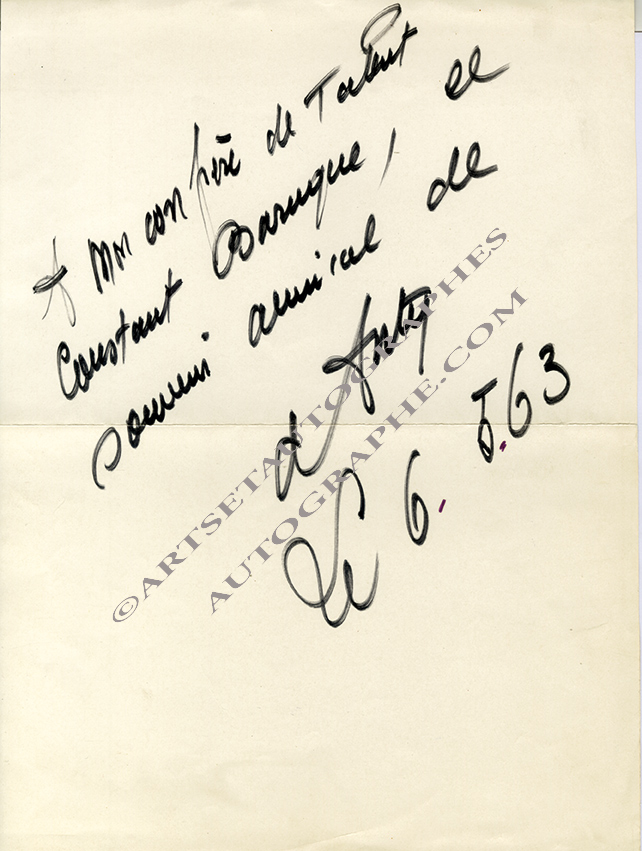 A Mon confrère de Talent
Constant Baruque, le
souvenir amical de
d'Anty
Le 6. 5.63
©ARTSETAUTOGRAPHES
AUTOGRAPHE.COM